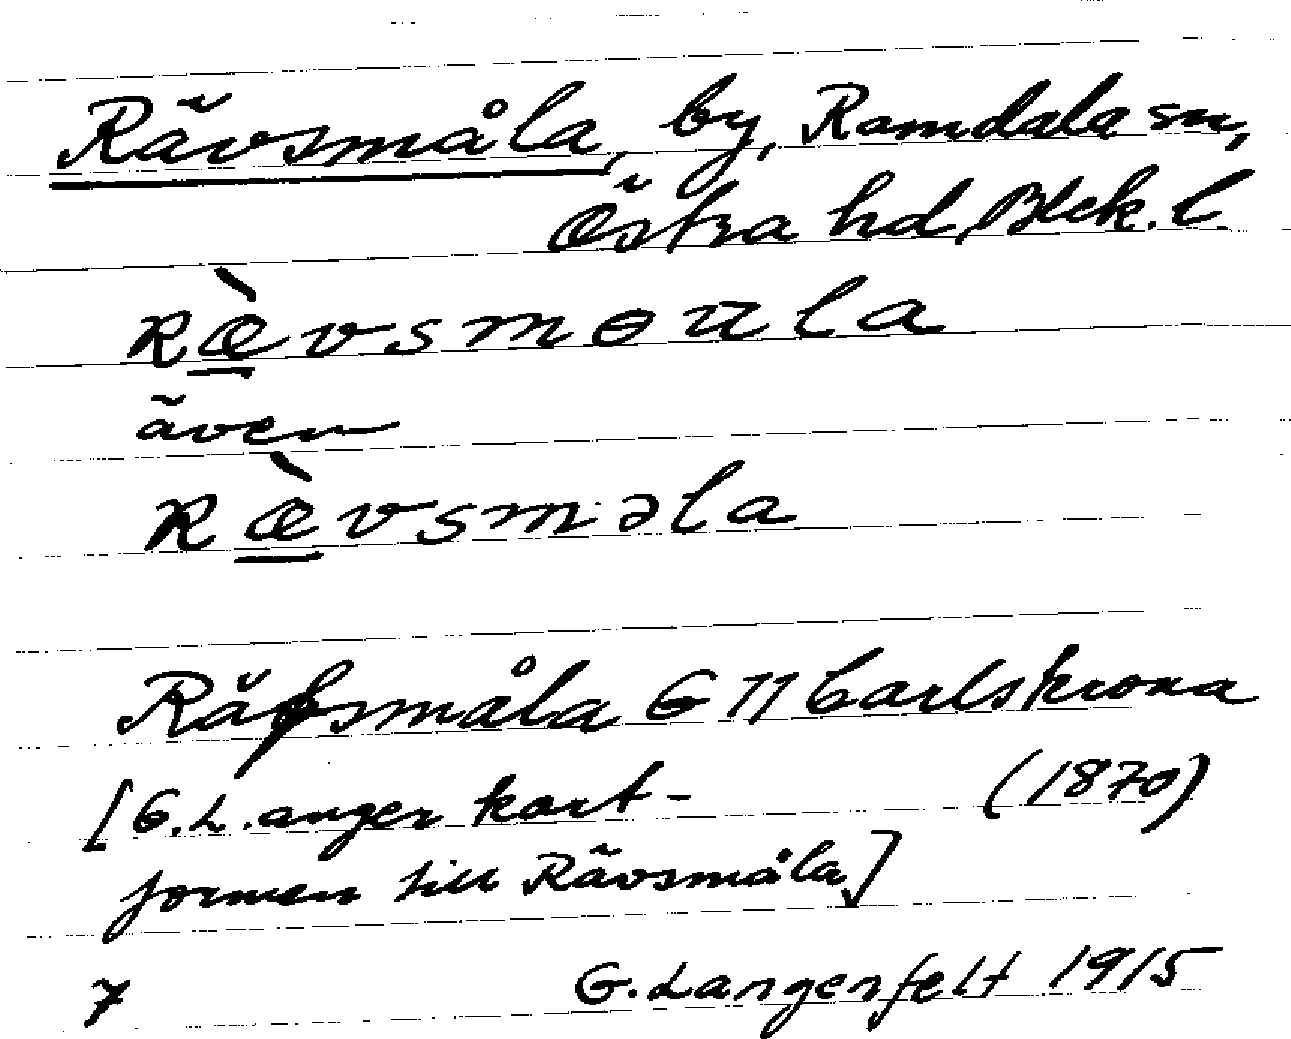 Rävsmåla, by, Ramdala sn,
Östra hd, Blek. l.
Ræ̀vsmɵula
även
Ræ̀vsməla
Räfsmåla G 11 Carlskrona
[G.L. anger kart- (1870)
formen till Rävsmåla]
7 G. Langenfelt 1915